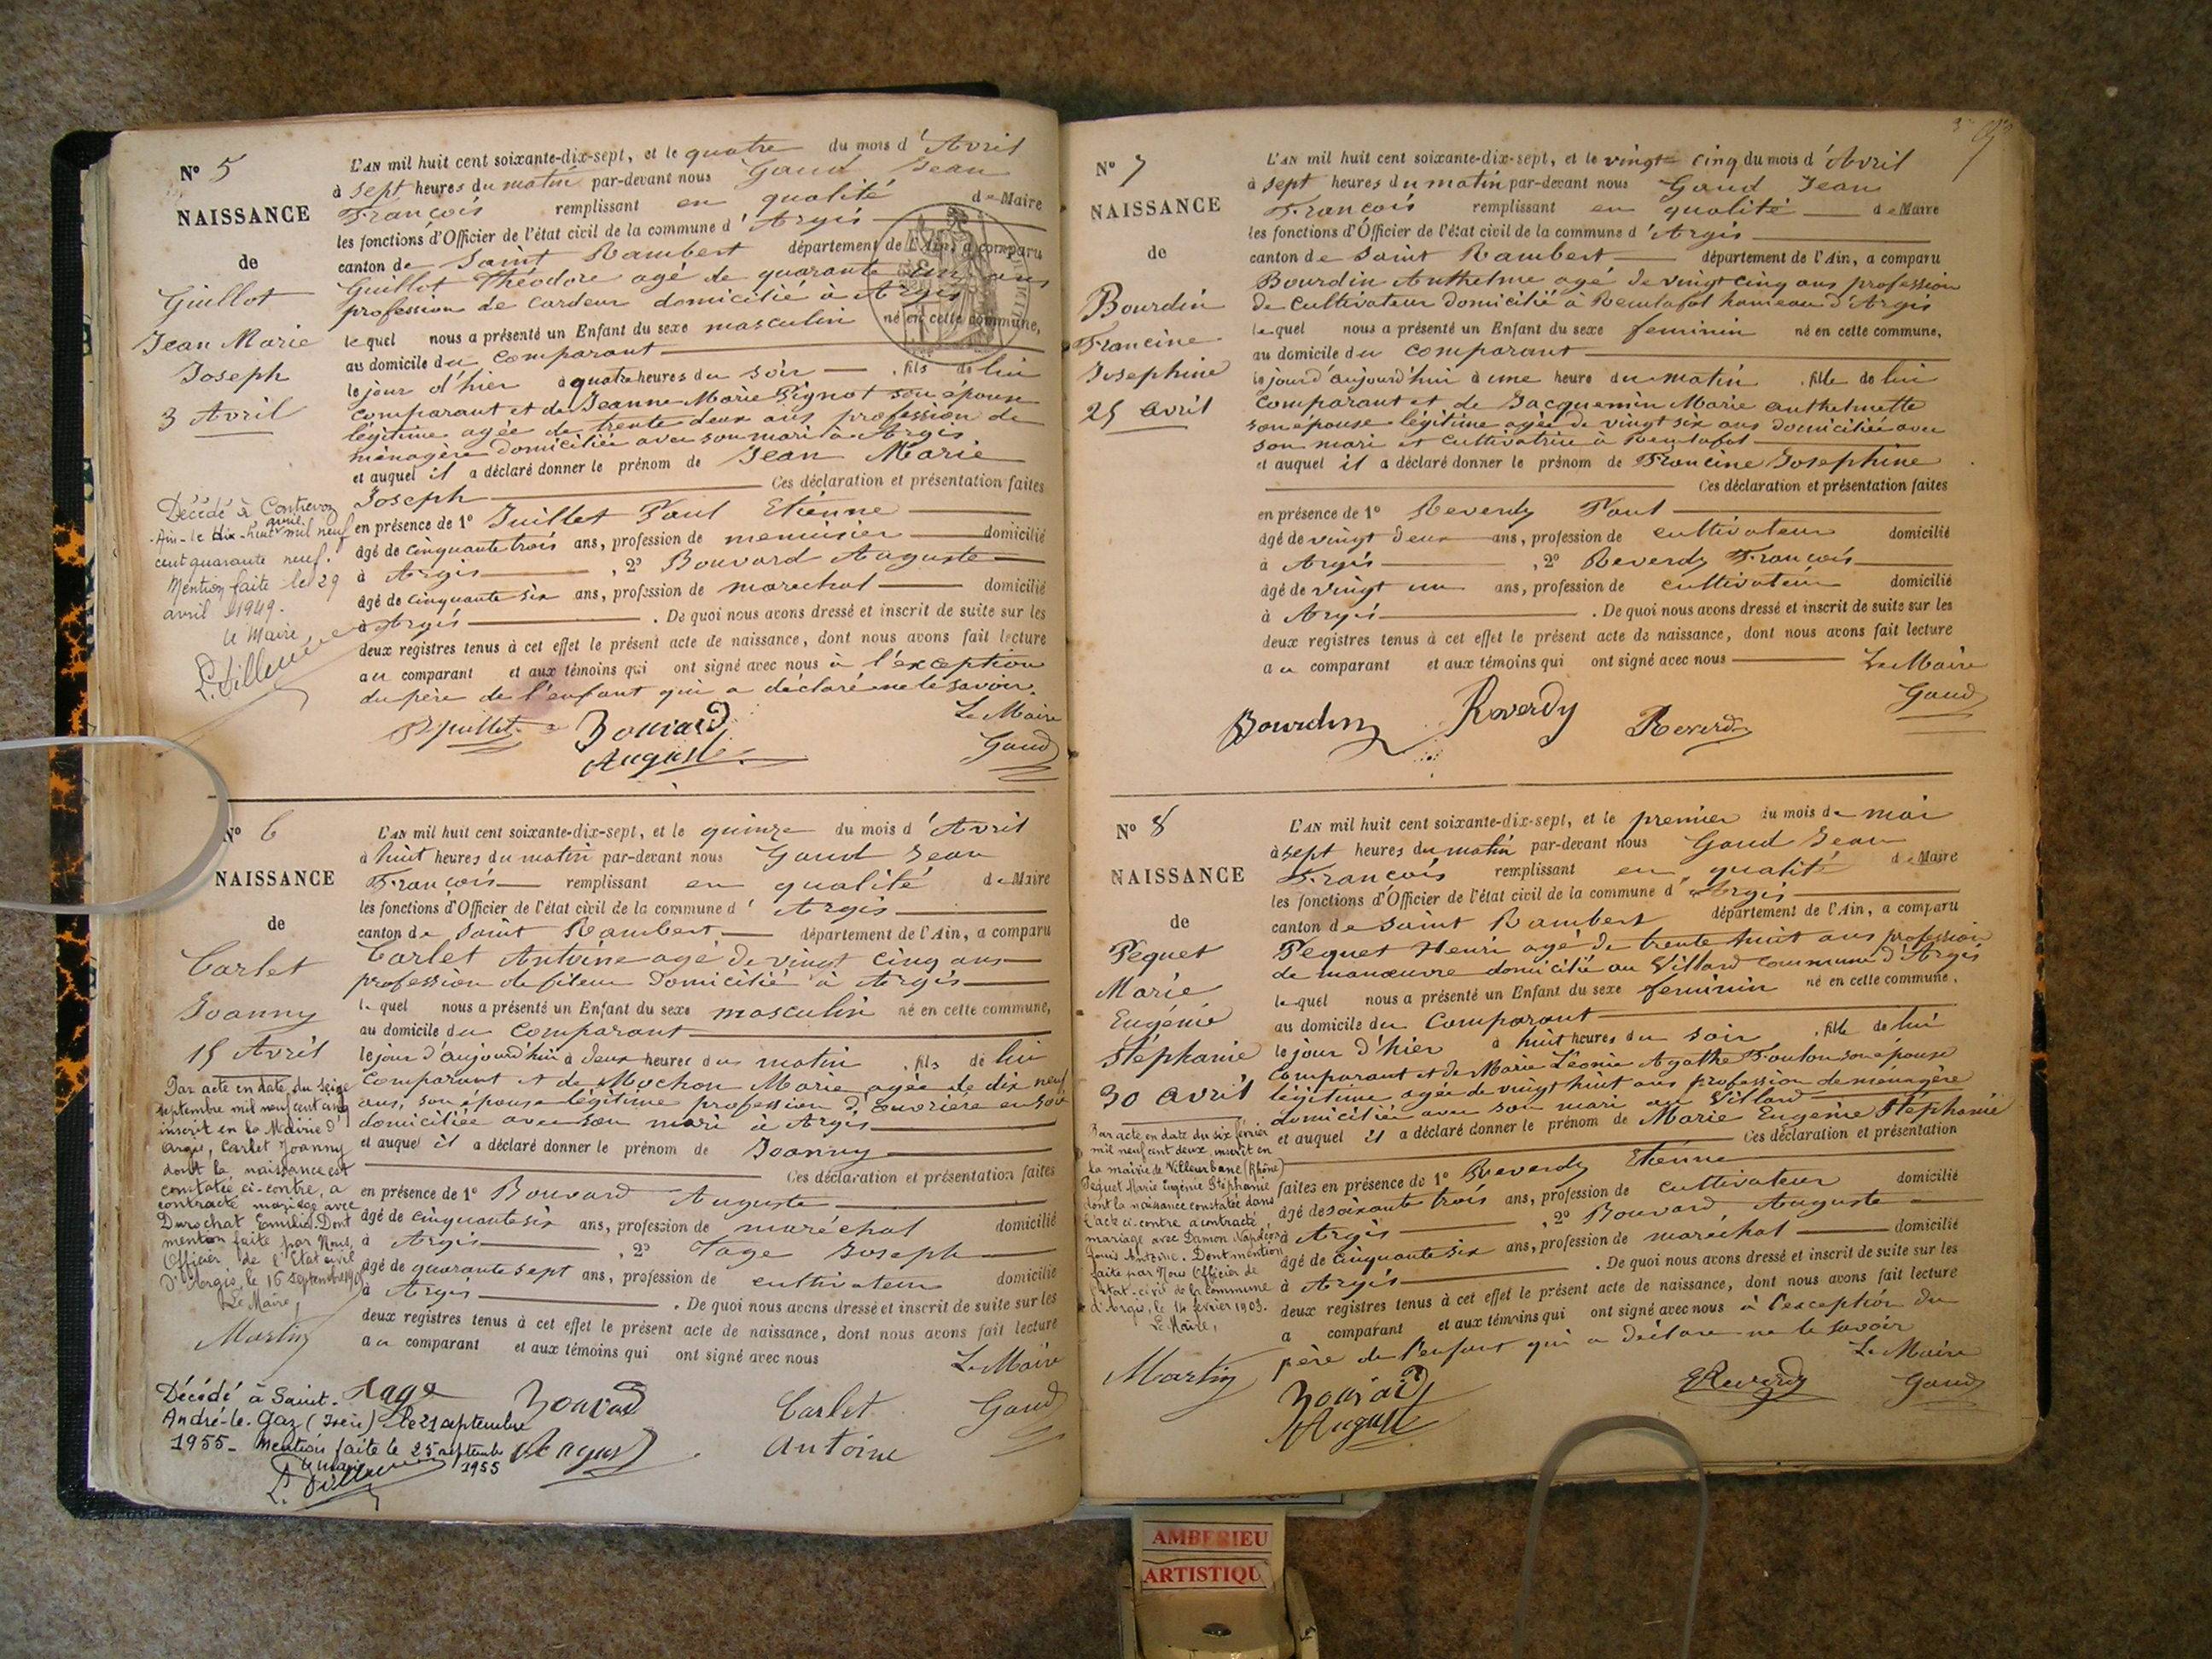 N° 5
NAISSANCE
de
Guillot
Jean Marie
Joseph
3 Avril
L'AN mil huit cent soixante-dix-sept, et le quatre du mois d'Avril
à sept heures du matin par-devant nous Gaud Jean
François remplissant en qualité de Maire
les fonctions d'Officier de l'état civil de la commune d'Argis
canton de Saint Rambert département de l'Ain, a comparu
Guillot Théodore agé de quarante un ans
profession de cardeur domicilié à Argis
lequel nous a présenté un Enfant du sexe masculin né en cette commune,
au domicile du comparant
le jour d'hier à quatre heures du soir fils de lui
comparant et de Jeanne Marie Pignot son épouse
légitime agée de trente deux ans profession de
ménagère domiciliée avec son mari à Argis
et auquel il a déclaré donner le prénom de Jean Marie
Joseph Ces déclaration et présentation faites
en présence de 1° Juillet Paul Etienne
âgé de cinquante trois ans, profession de menuisier domicilié
à Argis, 2° Bouvard Auguste
âgé de cinquante six ans, profession de marechal domicilié
à Argis. De quoi nous avons dressé et inscrit de suite sur les
deux registres tenus à cet effet le présent acte de naissance, dont nous avons fait lecture
au comparant et aux témoins qui ont signé avec nous à l'exception
du père de l'enfant qui a déclaré ne le savoir.
Le Maire
Juillet Bouvard Gaud
Auguste
Décédé à Contrevoz
Ain - le dix-huit avril mil neuf
cent quarante neuf.
Mention faite le 29
avril 1949.
Le Maire,
N° 6
NAISSANCE
de
Carlet
Joanny
15 Avril
L'AN mil huit cent soixante-dix-sept, et le quinze du mois d'Avril
à huit heures du matin par-devant nous Gaud Jean
François remplissant en qualité de Maire
les fonctions d'Officier de l'état civil de la commune d'Argis
canton de Saint Rambert département de l'Ain, a comparu
Carlet Antoine agé de vingt cinq ans
profession de fileur domicilié à Argis
lequel nous a présenté un Enfant du sexe masculin né en cette commune,
au domicile du comparant
le jour d'aujourd'hui à deux heures du matin fils de lui
comparant et de Mochon Marie agée de dix neuf
ans, son épouse légitime profession d'ouvrière en soie
domiciliée avec son mari à Argis
et auquel il a déclaré donner le prénom de Joanny
Ces déclaration et présentation faites
en présence de 1° Bouvard Auguste
âgé de cinquante six ans, profession de maréchal domicilié
à Argis, 2° Tage Joseph
âgé de quarante sept ans, profession de cultivateur domicilié
à Argis. De quoi nous avons dressé et inscrit de suite sur les
deux registres tenus à cet effet le présent acte de naissance, dont nous avons fait lecture
au comparant et aux témoins qui ont signé avec nous
Le Maire
Tage Bouvard Carlet Gaud
Antoine
Par acte en date du seize
septembre mil neuf cent cinq
inscrit en la Mairie d'
Argis, Carlet Joanny
dont la naissance est
constatée ci-contre, a
contracté mariage avec
Durochat Emilie. Dont
mention faite par Nous,
Officier de l'Etat civil
d'Argis, le 16 septembre
Le Maire,
Martin
Décédé à Saint-
André-le-Gaz (Isère) le 21 septembre
1955 - Mention faite le 25 septembre
1955
Le maire
N° 7
NAISSANCE
de
Bourdin
Francine
Josephine
25 avril
L'AN mil huit cent soixante-dix-sept, et le vingt cinq du mois d'Avril
à sept heures du matin par-devant nous Gaud Jean
François remplissant en qualité de Maire
les fonctions d'Officier de l'état civil de la commune d'Argis
canton de Saint Rambert département de l'Ain, a comparu
Bourdin Anthelme agé de vingt cinq ans profession
de cultivateur domicilié à Reculafol hameau d'Argis
lequel nous a présenté un Enfant du sexe feminin né en cette commune,
au domicile du comparant
le jour d'aujourd'hui à une heure du matin fille de lui
comparant et de Jacquemin Marie anthelmette
son épouse légitime agée de vingt six ans domiciliée avec
son mari et cultivatrice à Reculafol
et auquel il a déclaré donner le prénom de Francine Josephine
Ces déclaration et présentation faites
en présence de 1° Reverdy Paul
âgé de vingt deux ans, profession de cultivateur domicilié
à Argis, 2° Reverdy François
âgé de vingt un ans, profession de cultivateur domicilié
à Argis. De quoi nous avons dressé et inscrit de suite sur les
deux registres tenus à cet effet le présent acte de naissance, dont nous avons fait lecture
au comparant et aux témoins qui ont signé avec nous Le Maire
Bourdin Reverdy Reverdy Gaud
N° 8
NAISSANCE
de
Pequet
Marie
Eugénie
Stéphanie
30 avril
L'AN mil huit cent soixante-dix-sept, et le premier du mois de mai
à sept heures du matin par-devant nous Gaud Jean
François remplissant en qualité de Maire
les fonctions d'Officier de l'état civil de la commune d'Argis
canton de Saint Rambert département de l'Ain, a comparu
Pequet Henri agé de trente huit ans profession
de manœuvre domicilié au Villard commune d'Argis
lequel nous a présenté un Enfant du sexe feminin né en cette commune,
au domicile du comparant
le jour d'hier à huit heures du soir fille de lui
comparant et de Marie Léonie Agathe Foulon son épouse
légitime agée de vingt huit ans profession de ménagère
domiciliée avec son mari au Villard
et auquel il a déclaré donner le prénom de Marie Eugénie Stéphanie
Ces déclaration et présentation
faites en présence de 1° Reverdy Etienne
âgé de soixante trois ans, profession de cultivateur domicilié
à Argis, 2° Bouvard, Auguste
âgé de cinquante six ans, profession de maréchal domicilié
à Argis. De quoi nous avons dressé et inscrit de suite sur les
deux registres tenus à cet effet le présent acte de naissance, dont nous avons fait lecture
a comparant et aux témoins qui ont signé avec nous à l'exception du
père de l'enfant qui a déclare ne le savoir
Le Maire
Bouvard Reverdy Gaud
August
Par acte en date du six février
mil neuf cent deux, inscrit en
la mairie de Villeurbane (Rhône)
Pequet Marie Eugénie Stéphanie
dont la naissance constatée dans
l'acte ci-contre a contracté
mariage avec Damon Napoléon
Louis Antoine. Dont mention
faite par Nous Officier de
l'état-civil de la commune
d'Argis, le 14 février 1903.
Le Maire,
Martin
AMBERIEU
ARTISTIQU